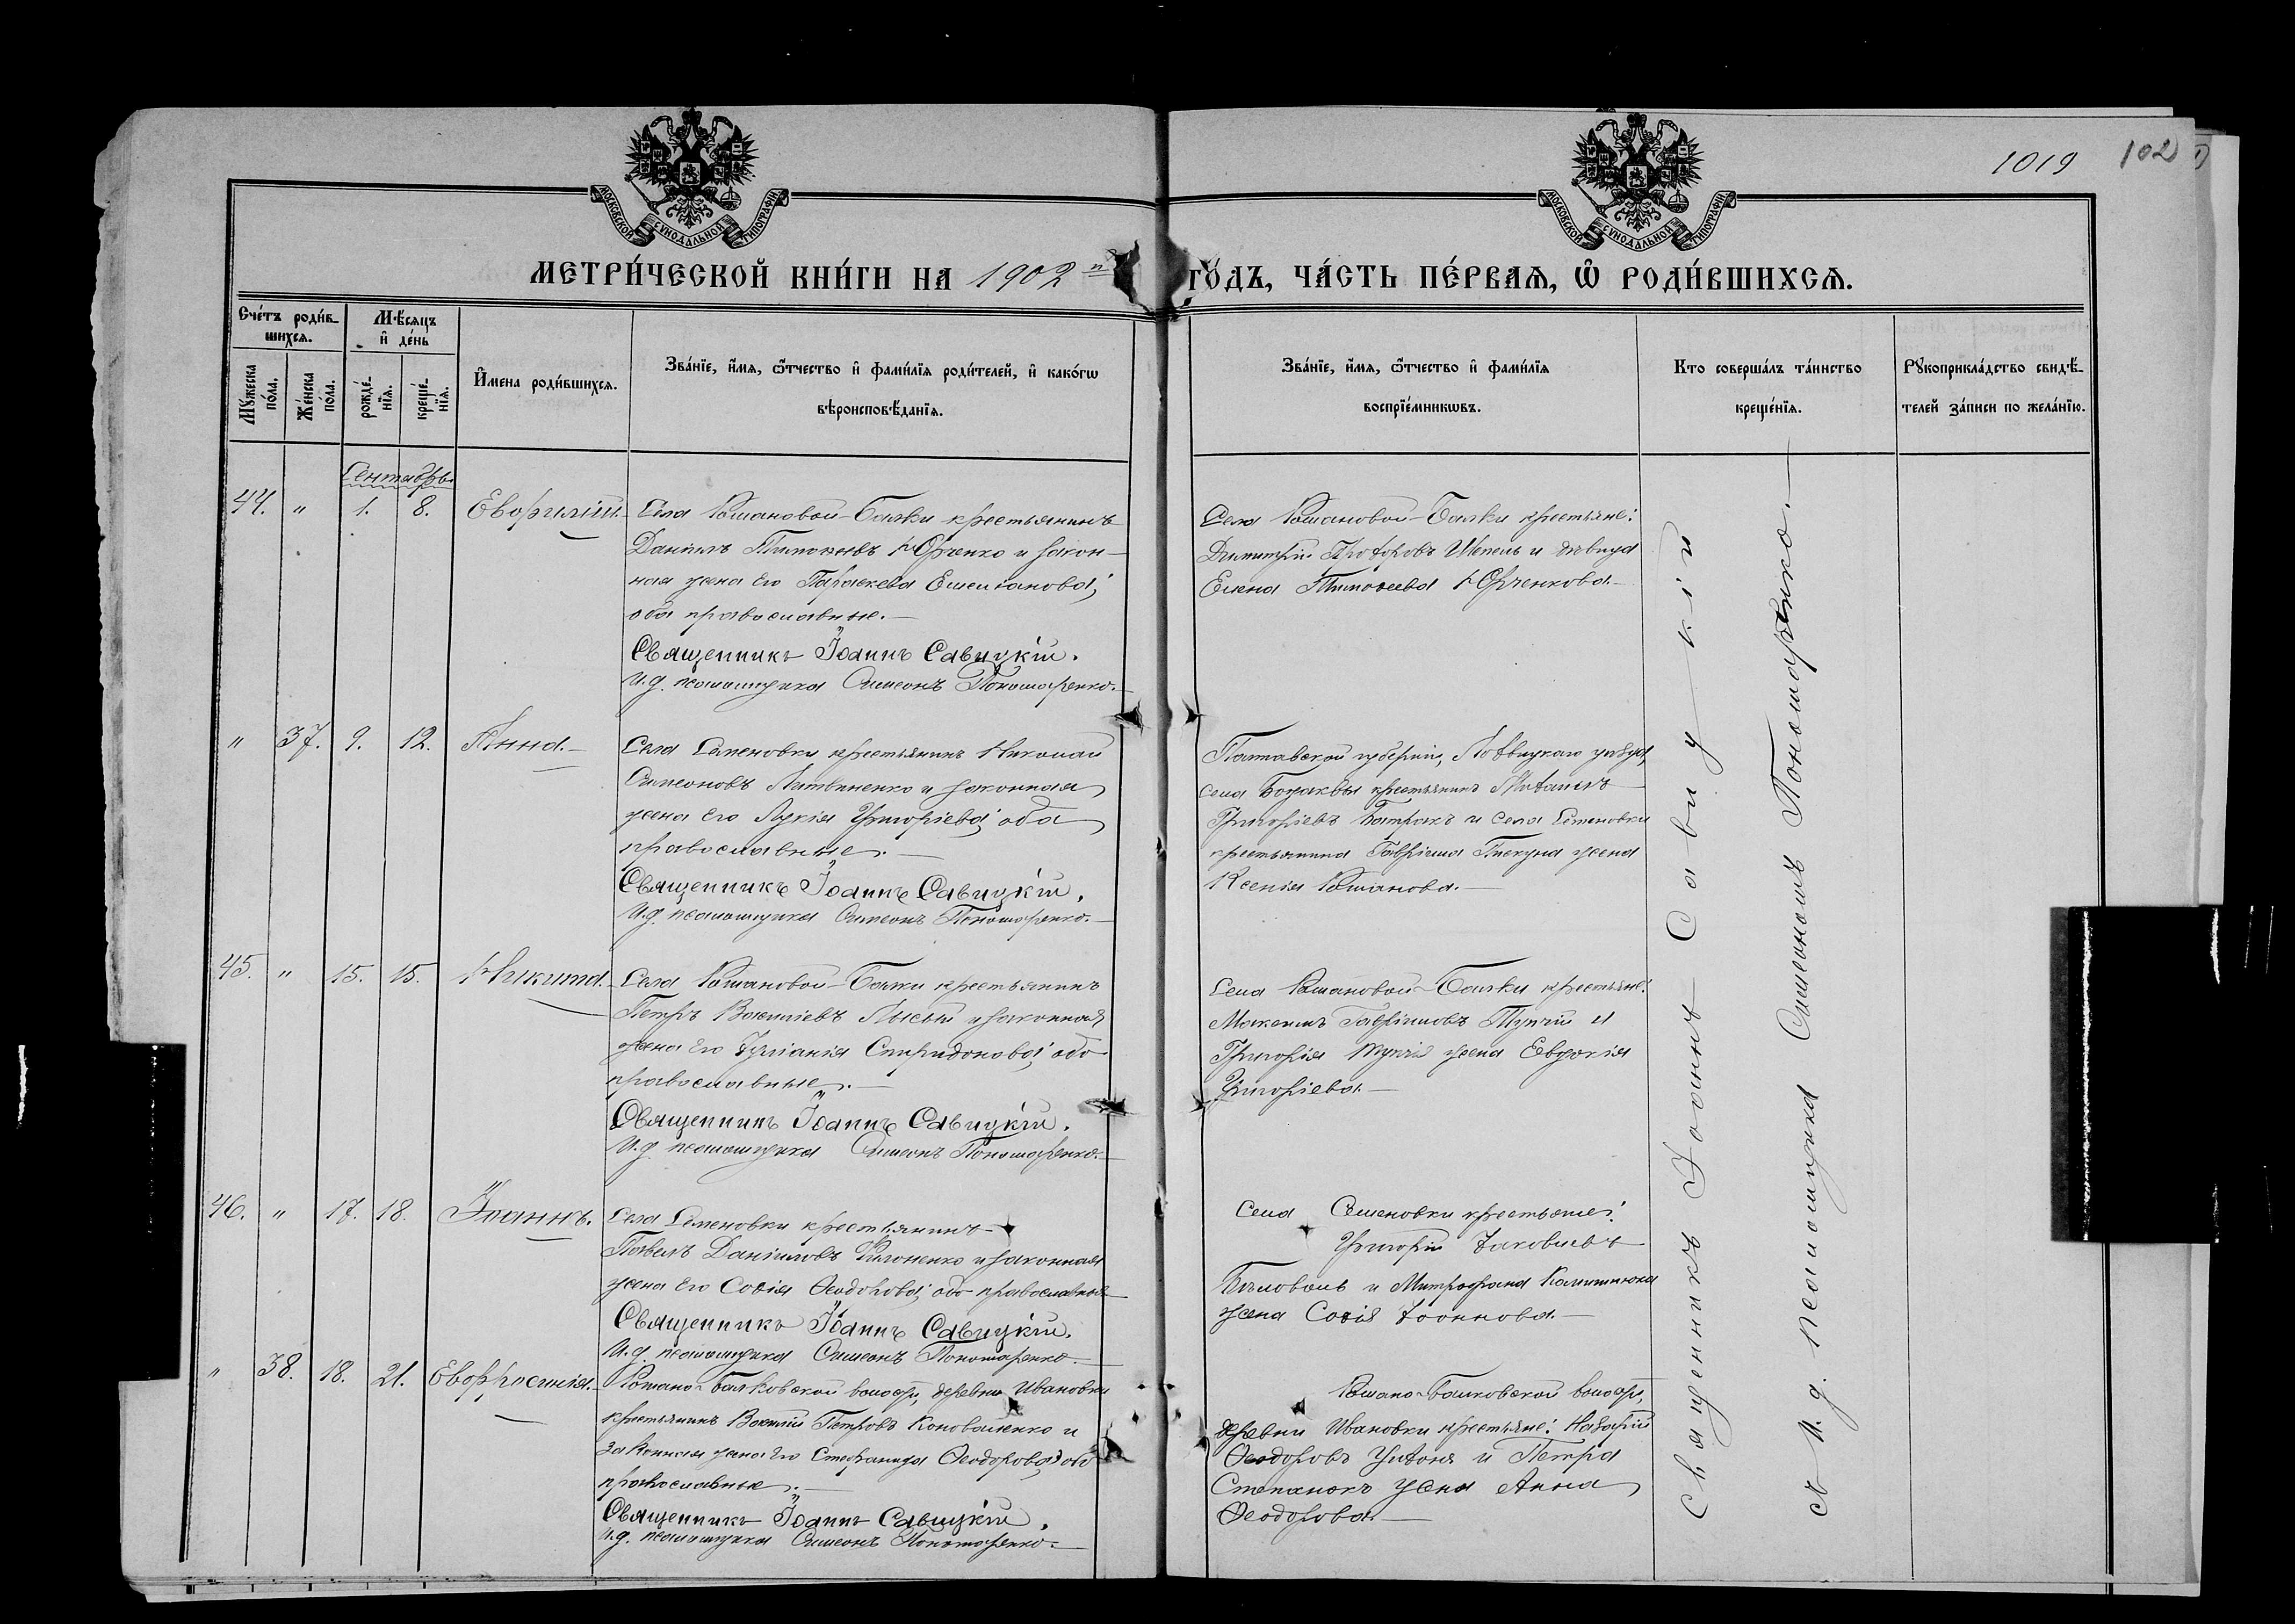 1019 102
МОСКОВСКОЙ СѴНОДАЛЬНОЙ ТИПОГРАФІИ
МОСКОВСКОЙ СѴНОДАЛЬНОЙ ТИПОГРАФІИ
МЕТРИ́ЧЕСКОЙ КНИ́ГИ НА 1902 й ГО́ДЪ, ЧА́СТЬ ПЕ́РВАѦ, Ѽ РОДИ́ВШИХСѦ.
Сче́тъ роди́вшихсѧ.
Мꙋ́жеска по́ла.
Же́нска по́ла.
Мѣ́сѧцъ и҆ де́нь
рожде́нїѧ.
креще́нїѧ.
И҆мена роди́вшихсѧ.
Зва́нїе, и҆́мѧ, ѻ҆́тчество и҆ фами́лїѧ роди́телей, и҆ како́гѡ
вѣроисповѣ́данїѧ.
Зва́нїе, и҆́мѧ, ѻ҆́тчество и҆ фами́лїѧ
воспрїе́мникѡвъ.
Кто соверша́лъ та́инство
креще́нїѧ.
Рꙋкоприкла́дство свидѣ́-
телей за́писи по жела́нїю.
Сентябрь
44. " 1. 8. Евфимій.
Села Романовой-Балки крестьянинъ
Даніилъ Тимоѳеевъ Юрченко и закон-
ная жена его Параскева Емеліанова;
оба православные.
Священникъ Іоаннъ Савицкій.
И.д. псаломщика Симеонъ Пономаренко.
Села Романовой-Балки крестьяне:
Димитрій Прохоровъ Шепель и дѣвица
Елена Тимоѳеева Юрченкова.
" 37. 9. 12. Анна.
Села Семеновки крестьянинъ Николай
Симеоновъ Литвиненко и законная
жена его Лукія Григоріева; оба
православные.
Священникъ Іоаннъ Савицкій.
И.д. псаломщика Симеонъ Пономаренко.
Полтавской губерніи, Лохвицкаго уѣзда,
села крестьянинъ Михаилъ
Григоріевъ Батракъ и села Семеновки
крестьянина Гавріила жена
Ксенія Романова.
45. " 15. 15. Никита.
Села Романовой-Балки крестьянинъ
Петръ Василіевъ Лысый и законная
жена его Іуліанія Спиридонова; оба
православные.
Священникъ Іоаннъ Савицкій.
И.д. псаломщика Симеонъ Пономаренко.
Села Романовой-Балки крестьяне:
Максимъ Гавріиловъ Тупчій и
Григорія Тупчія жена Евдокія
Григоріева.
46. " 17. 18. Іоаннъ.
Села Семеновки крестьянинъ
Павелъ Даніиловъ Филоненко и законная
жена его Софія Ѳеодорова; оба православные
Священникъ Іоаннъ Савицкій.
И.д. псаломщика Симеонъ Пономаренко.
Села Семеновки крестьяне:
Григорій Іаковлевъ
Бѣловолъ и Митрофана
жена Софія Іоаннова.
" 38. 18. 21. Евфросинія.
Романо-Балковской волости, деревни Ивановки
крестьянинъ Василій Петровъ Коноваленко и
законная жена его Стефанида Ѳеодорова; оба
православные.
Священникъ Іоаннъ Савицкій.
И.д. псаломщика Симеонъ Пономаренко.
Романо-Балковской волости,
деревни Ивановки крестьяне: Назарій
Ѳеодоровъ и Петра
Степанокъ жена Анна
Ѳеодорова.
Священникъ Іоаннъ Савицкій
съ И.д. псаломщика Симеономъ Пономаренко.